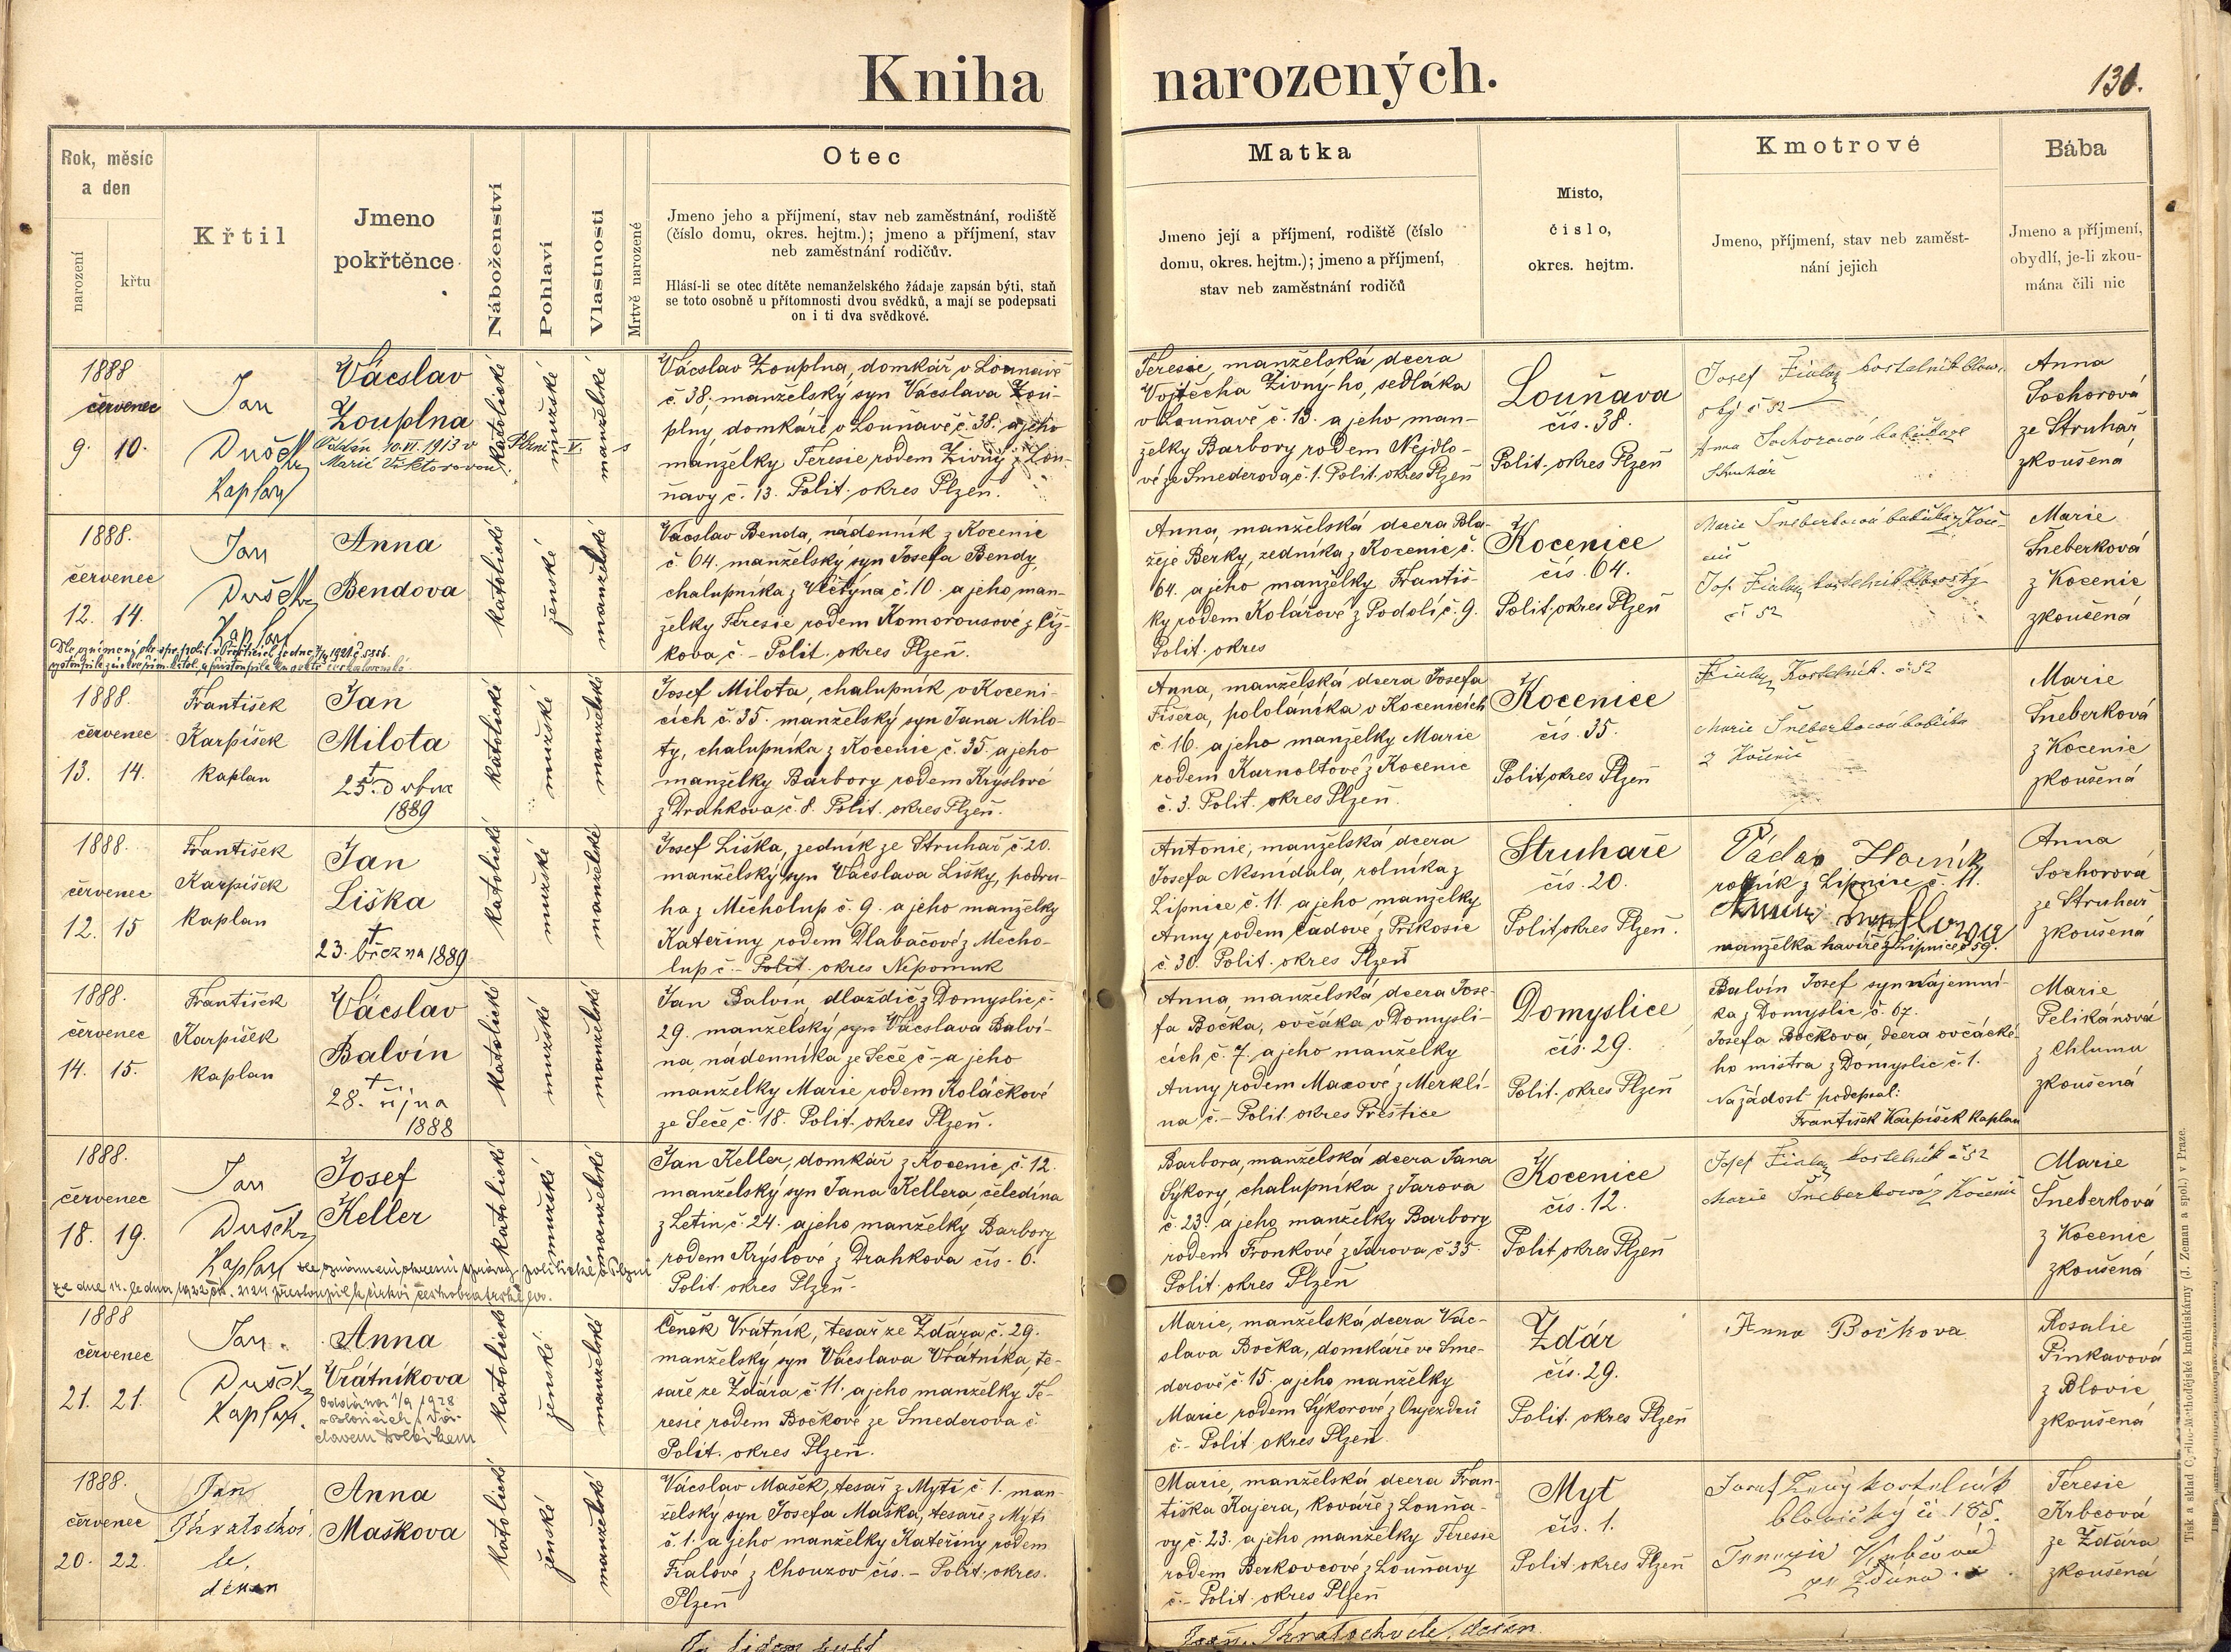 Kniha narozených.
131.
Rok, měsíc
a den
narození
křtu
Křtil
Jmeno
pokřtěnce
Náboženství
Pohlaví
Vlastnosti
Mrtvě narozené
Otec
Jmeno jeho a příjmení, stav neb zaměstnání, rodiště
(číslo domu, okres. hejtm.); jmeno a příjmení, stav
neb zaměstnání rodičův.
Hlásí-li se otec dítěte nemanželského žádaje zapsán býti, staň
se toto osobně u přítomnosti dvou svědků, a mají se podepsati
on i ti dva svědkové.
Matka
Jmeno její a příjmení, rodiště (číslo
domu, okres. hejtm.); jmeno a příjmení,
stav neb zaměstnání rodičů
Místo,
číslo,
okres. hejtm.
Kmotrové
Jmeno, příjmení, stav neb zaměst-
nání jejich
Bába
Jmeno a příjmení,
obydlí, je-li zkou-
mána čili nic
1888
červenec
9. 10.
Jan
Dušek
Kaplan
Vácslav
Zouplna
Oddán 10.VI.1913 v Plzni-V. s
Marií Viktorovou.
katolické
mužské
manželské
Vácslav Zouplna, domkář v Lounavě
č. 38, manželský syn Vácslava Zou-
plny, domkáře v Louňavě č. 38. a jeho
manželky Teresie rodem Živný z Lou-
ňavy č. 13. Polit. okres Plzeň.
Teresie, manželská dcera
Vojtěcha Živný-ho, sedláka
v Louňavě č. 13. a jeho man-
želky Barbory rodem Nejdlo-
vé ze Smederova č. 1. Polit. okres Plzeň
Louňava
čís. 38.
Polit. okres Plzeň
Josef Fiala kostelník blow.
obyč 52
Anna Sochorová babička ze
Struhař
Anna
Sochorová
ze Struhař
zkoušená
1888.
červenec
12. 14.
Jan
Dušek
Kaplan
Anna
Bendova
katolické
ženské
manželské
Vácslav Benda, nádenník z Kocenic
č. 64. manželský syn Josefa Bendy,
chalupníka z Vlčtýna č. 10. a jeho man-
želky Teresie rodem Komorousové z Čiž-
kova č. - Polit. okres Plzeň.
Anna, manželská dcera Bla-
žeje Berky, zedníka z Kocenic č.
64. a jeho manželky Františ-
ky rodem Kolářové z Podolí č. 9.
Polit. okres
Kocenice
čís. 64.
Polit. okres Plzeň
Marie Šneberková babička z Koče-
nic
Jos. Fiala kostelník
č 52
Marie
Šneberková
z Kocenic
zkoušená
1888.
červenec
13. 14.
František
Karpíšek
kaplan
Jan
Milota
† 25. dubna
1889
katolické
mužské
manželské
Josef Milota, chalupník v Koceni-
cích č. 35. manželský syn Jana Milo-
ty, chalupníka z Kocenic č. 35. a jeho
manželky Barbory rodem Krýslové
z Drahkova č. 8. Polit. okres Plzeň.
Anna, manželská dcera Josefa
Fišera, pololáníka v Kocenicích
č. 16. a jeho manželky Marie
rodem Karnoltové z Kocenic
č. 3. Polit. okres Plzeň.
Kocenice
čís. 35.
Polit. okres Plzeň
Fiala Kostelník. č. 52
Marie Šneberková babička
z Kočenic
Marie
Šneberková
z Kocenic
zkoušená
1888.
červenec
12. 15
František
Karpíšek
kaplan
Jan
Liška
†
23. března 1889
katolické
mužské
manželské
Josef Liška, zedník ze Struhař č. 20.
manželský syn Vácslava Lišky, podru-
ha z Měcholup č. 9. a jeho manželky
Kateřiny rodem Dlabačové z Měcho-
lup č. - Polit. okres Nepomuk
Antonie, manželská dcera
Josefa Nesnídala, rolníka z
Lipnice č. 11. a jeho manželky
Anny rodem Čadové z Příkosic
č. 30. Polit. okres Plzeň
Struhaře
čís. 20.
Polit. okres Plzeň.
rolník z Lipnice č. 11.
manželka havíře z Lipnice č 59.
Anna
Sochorová
ze Struhař
zkoušená
1888.
červenec
14. 15.
František
Karpíšek
kaplan
Vácslav
Balvín
†
28. října
1888
katolické
mužské
manželské
Jan Balvín, dlaždič z Domyslic č.
29. manželský syn Vácslava Balví-
na, nádenníka ze Seče č - a jeho
manželky Marie rodem Koláčkové
ze Seče č. 18. Polit. okres Plzeň.
Anna manželská dcera Jose-
fa Bočka, ovčáka v Domysli-
cích č. 7. a jeho manželky
Anny rodem Maxové z Merklí-
na č. - Polit. okres Přeštice
Domyslice
čís. 29.
Polit. okres Plzeň
Balvín Josef syn nájemní-
ka z Domyslic, č. 67.
Josefa Bočkova, dcera ovčácké-
ho mistra z Domyslic č. 1.
Na žádost podepsal:
František Karpíšek kaplan
Marie
Pelikánová
z Chlumu
zkoušená
1888.
červenec
18. 19.
Jan
Dušek
Kaplan
Josef
Keller
katolické
mužské
manželské
Jan Keller, domkář z Kocenic, č. 12.
manželský syn Jana Kellera, čeledína
z Letin č. 24. a jeho manželky Barbory
rodem Krýslové z Drahkova čís. 6.
Polit. okres Plzeň.
Barbora, manželská dcera Jana
Sýkory, chalupníka z Jarova
č. 23. a jeho manželky Barbory
rodem Fronkové z Jarova č 35.
Polit. okres Plzeň
Kocenice
čís. 12.
Polit. okres Plzeň
Josef Fiala kostelník č 52
Marie Šneberková z Kočenic
Marie
Šneberková
z Kocenic
zkoušená
1888
červenec
21. 21.
Jan
Dušek
Kaplan.
Anna
Vrátníkova
katolické
ženské
manželské
Čeněk Vrátník, tesař ze Ždára č. 29.
manželský syn Vácslava Vrátníka, te-
saře ze Ždára č. 11. a jeho manželky Te-
resie rodem Bočkové ze Smederova č.
Polit. okres Plzeň.
Marie, manželská dcera Vác-
slava Bočka, domkáře ve Sme-
derově č. 15. a jeho manželky
Marie rodem Sýkorové z Oujezdu
č. - Polit. okres Plzeň.
Ždár
čís. 29.
Polit. okres Plzeň
Anna Bočkova
Rosalie
Pinkavová
z Blovic
zkoušená
1888.
červenec
20. 22.
Jan
děkan
Anna
Maškova
katolické
ženské
manželské
Vácslav Mašek, tesař z Mýti č 1. man-
želský syn Josefa Maška, tesaře z Mýti
č. 1. a jeho manželky Kateřiny rodem
Fialové z Chouzov čís. - Polit. okres.
Plzeň
Marie, manželská dcera Fran-
tiška Kajera, kováře z Louňa-
vy č. 23. a jeho manželky Teresie
rodem Berkovcové z Louňavy
č. - Polit. okres Plzeň
Myt
čís. 1.
Polit. okres Plzeň
blovický č 188.
Teresie
Krbcová
ze Ždára
zkoušená
Tisk a sklad Cyrillo-Methodějské knihtiskárny (J. Zeman a spol.) v Praze.